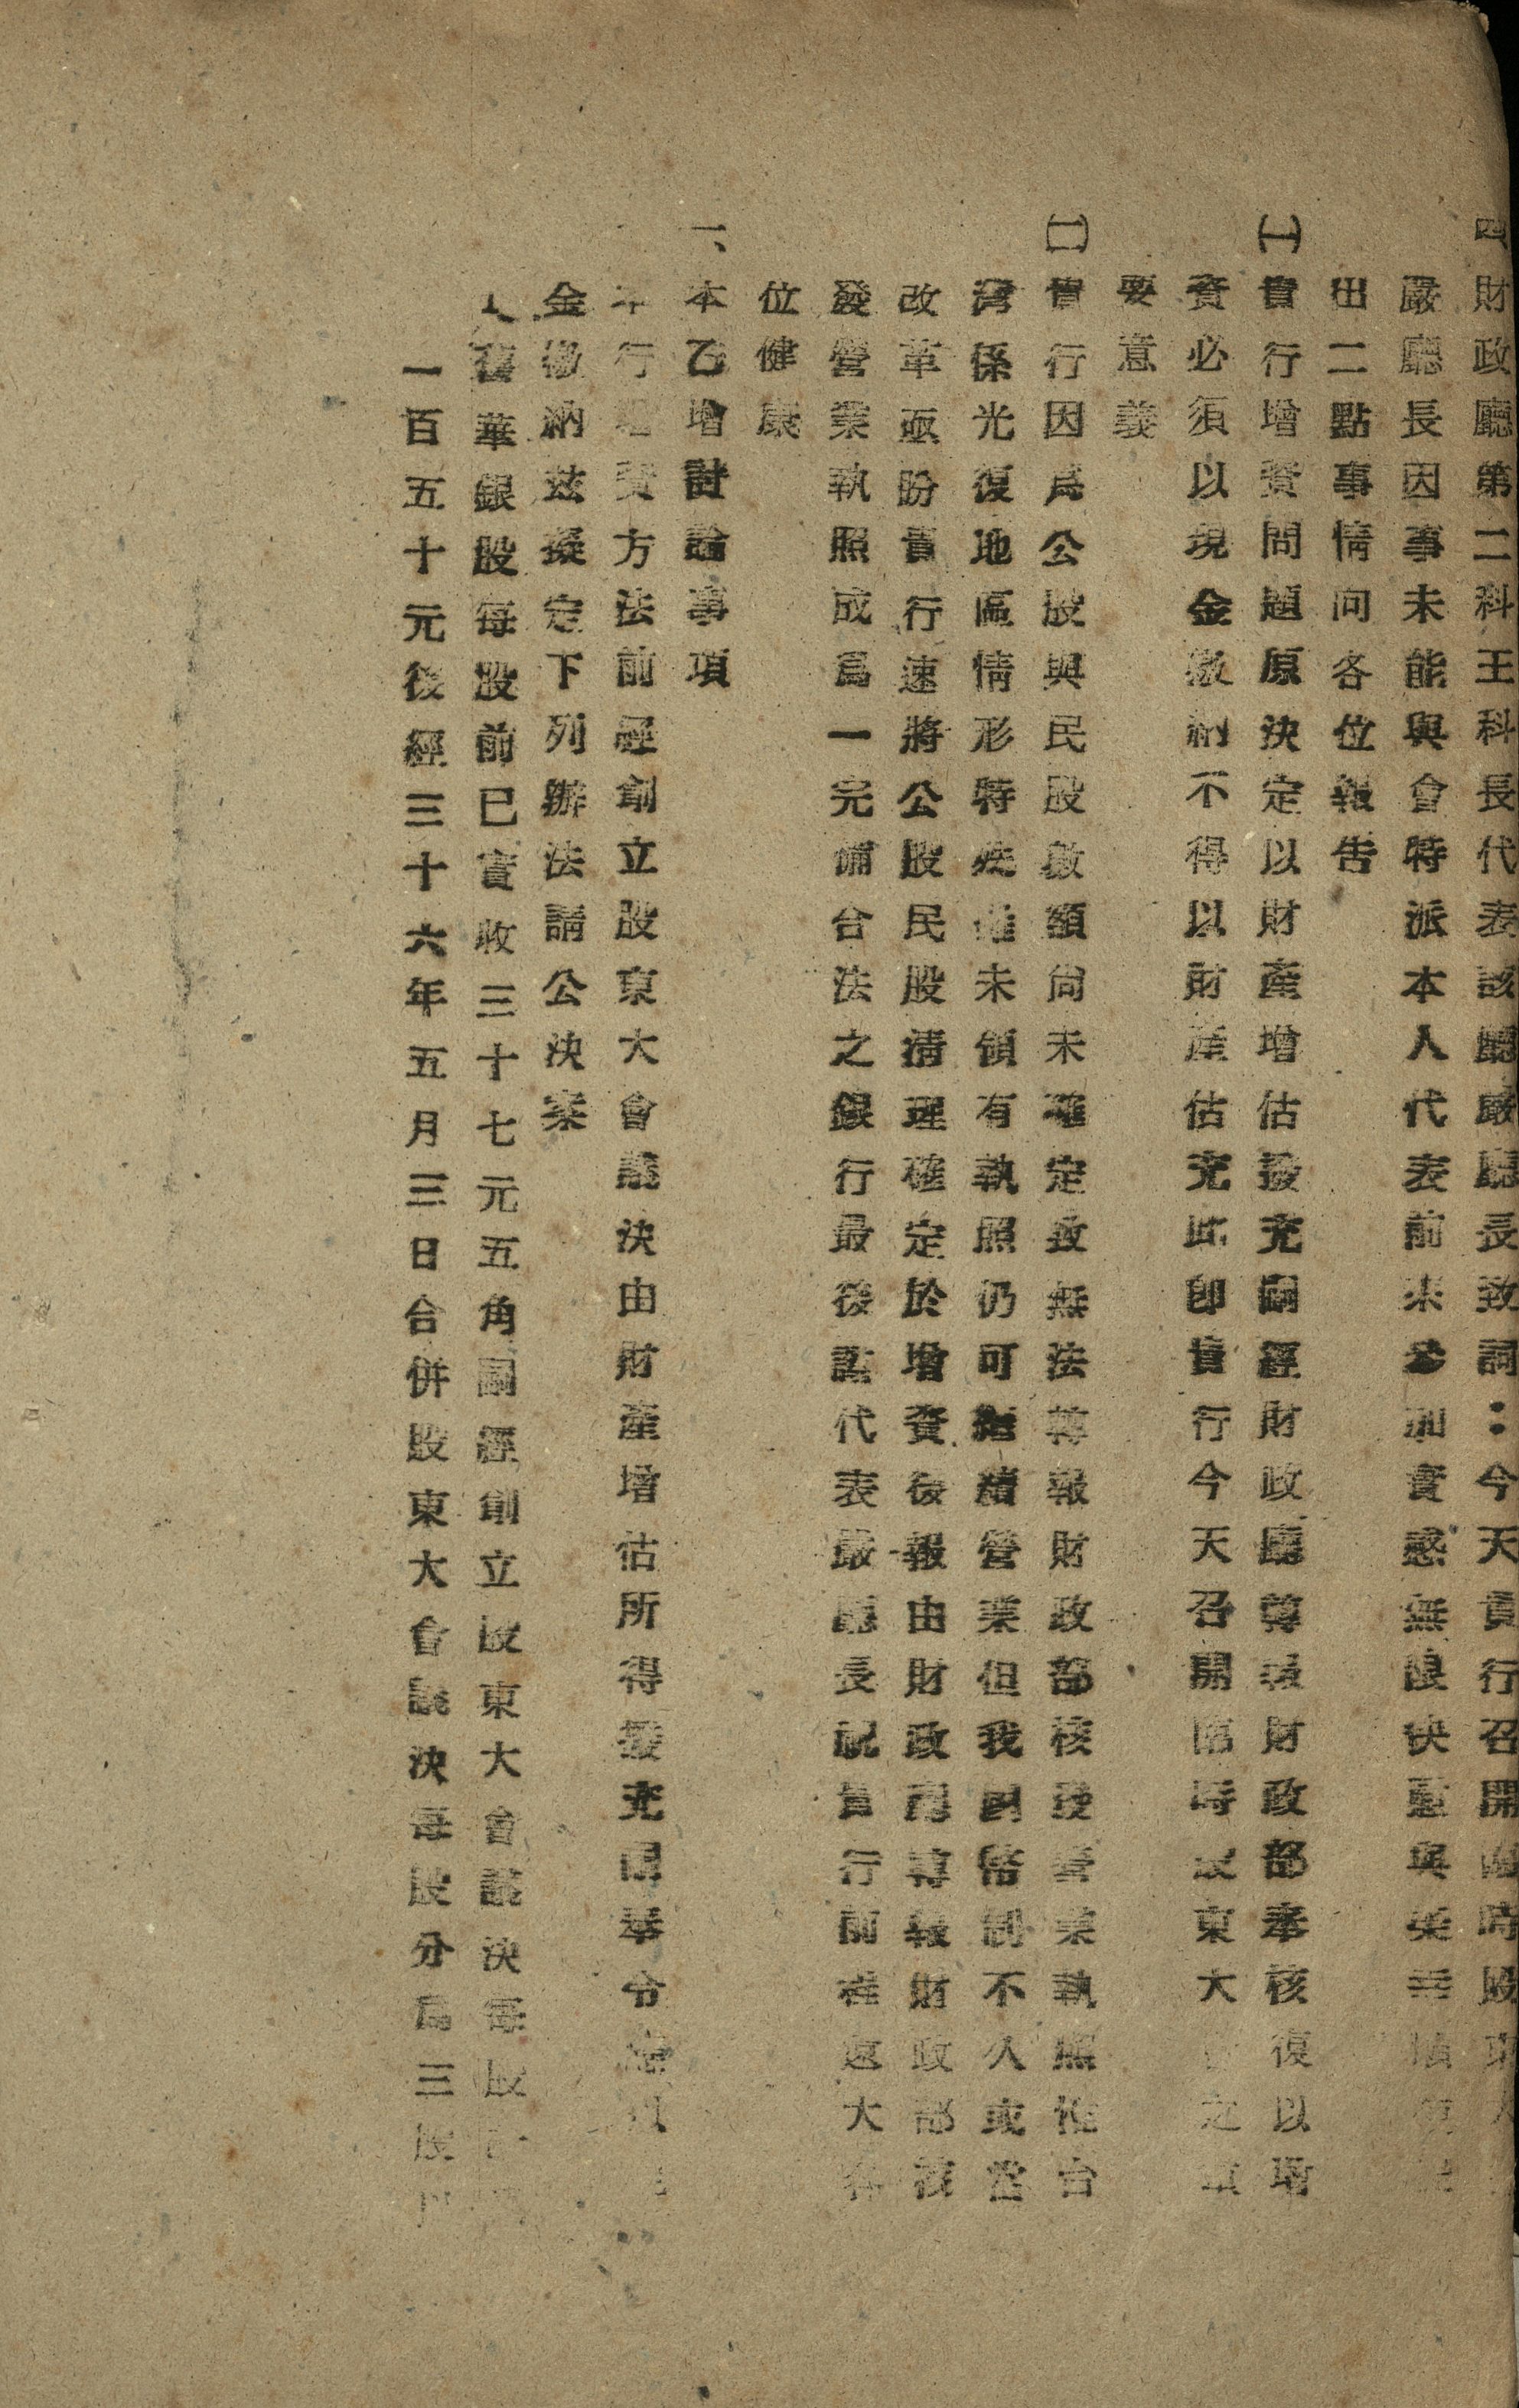 四財政廳第二科王科長代表該廳嚴廳長致詞：今天貴行召開臨時股東大
嚴廳長因事未能與會特派本人代表前來參加實感無限快慰與榮幸順便提
出二點事情向各位報告
㈠貴行增資問題原決定以財產增估撥充嗣經財政廳轉報財政部奉核復以增
資必須以現金繳納不得以財產估充此即貴行今天召開臨時股東大會之重
要意義
㈡貴行因爲公股與民股數額尚未確定致無法轉報財政部核發營業執照惟台
灣係光復地區情形特殊雖未領有執照仍可繼續營業但我國幣制不久或當
改革亟盼貴行速將公股民股清理確定於增資後報由財政廳轉報財政部核
發營業執照成爲一完備合法之銀行最後謹代表嚴廳長祝貴行前程遠大各
位健康
乙討論事項
一、本增
本行增資方法前經創立股東大會議決由財產增估所得撥充嗣奉令應以現
金繳納茲擬定下列辦法請公決案
舊華銀股每股前已實收三十七元五角嗣經創立股東大會議決每股
一百五十元後經三十六年五月三日合併股東大會議決每股分爲三股